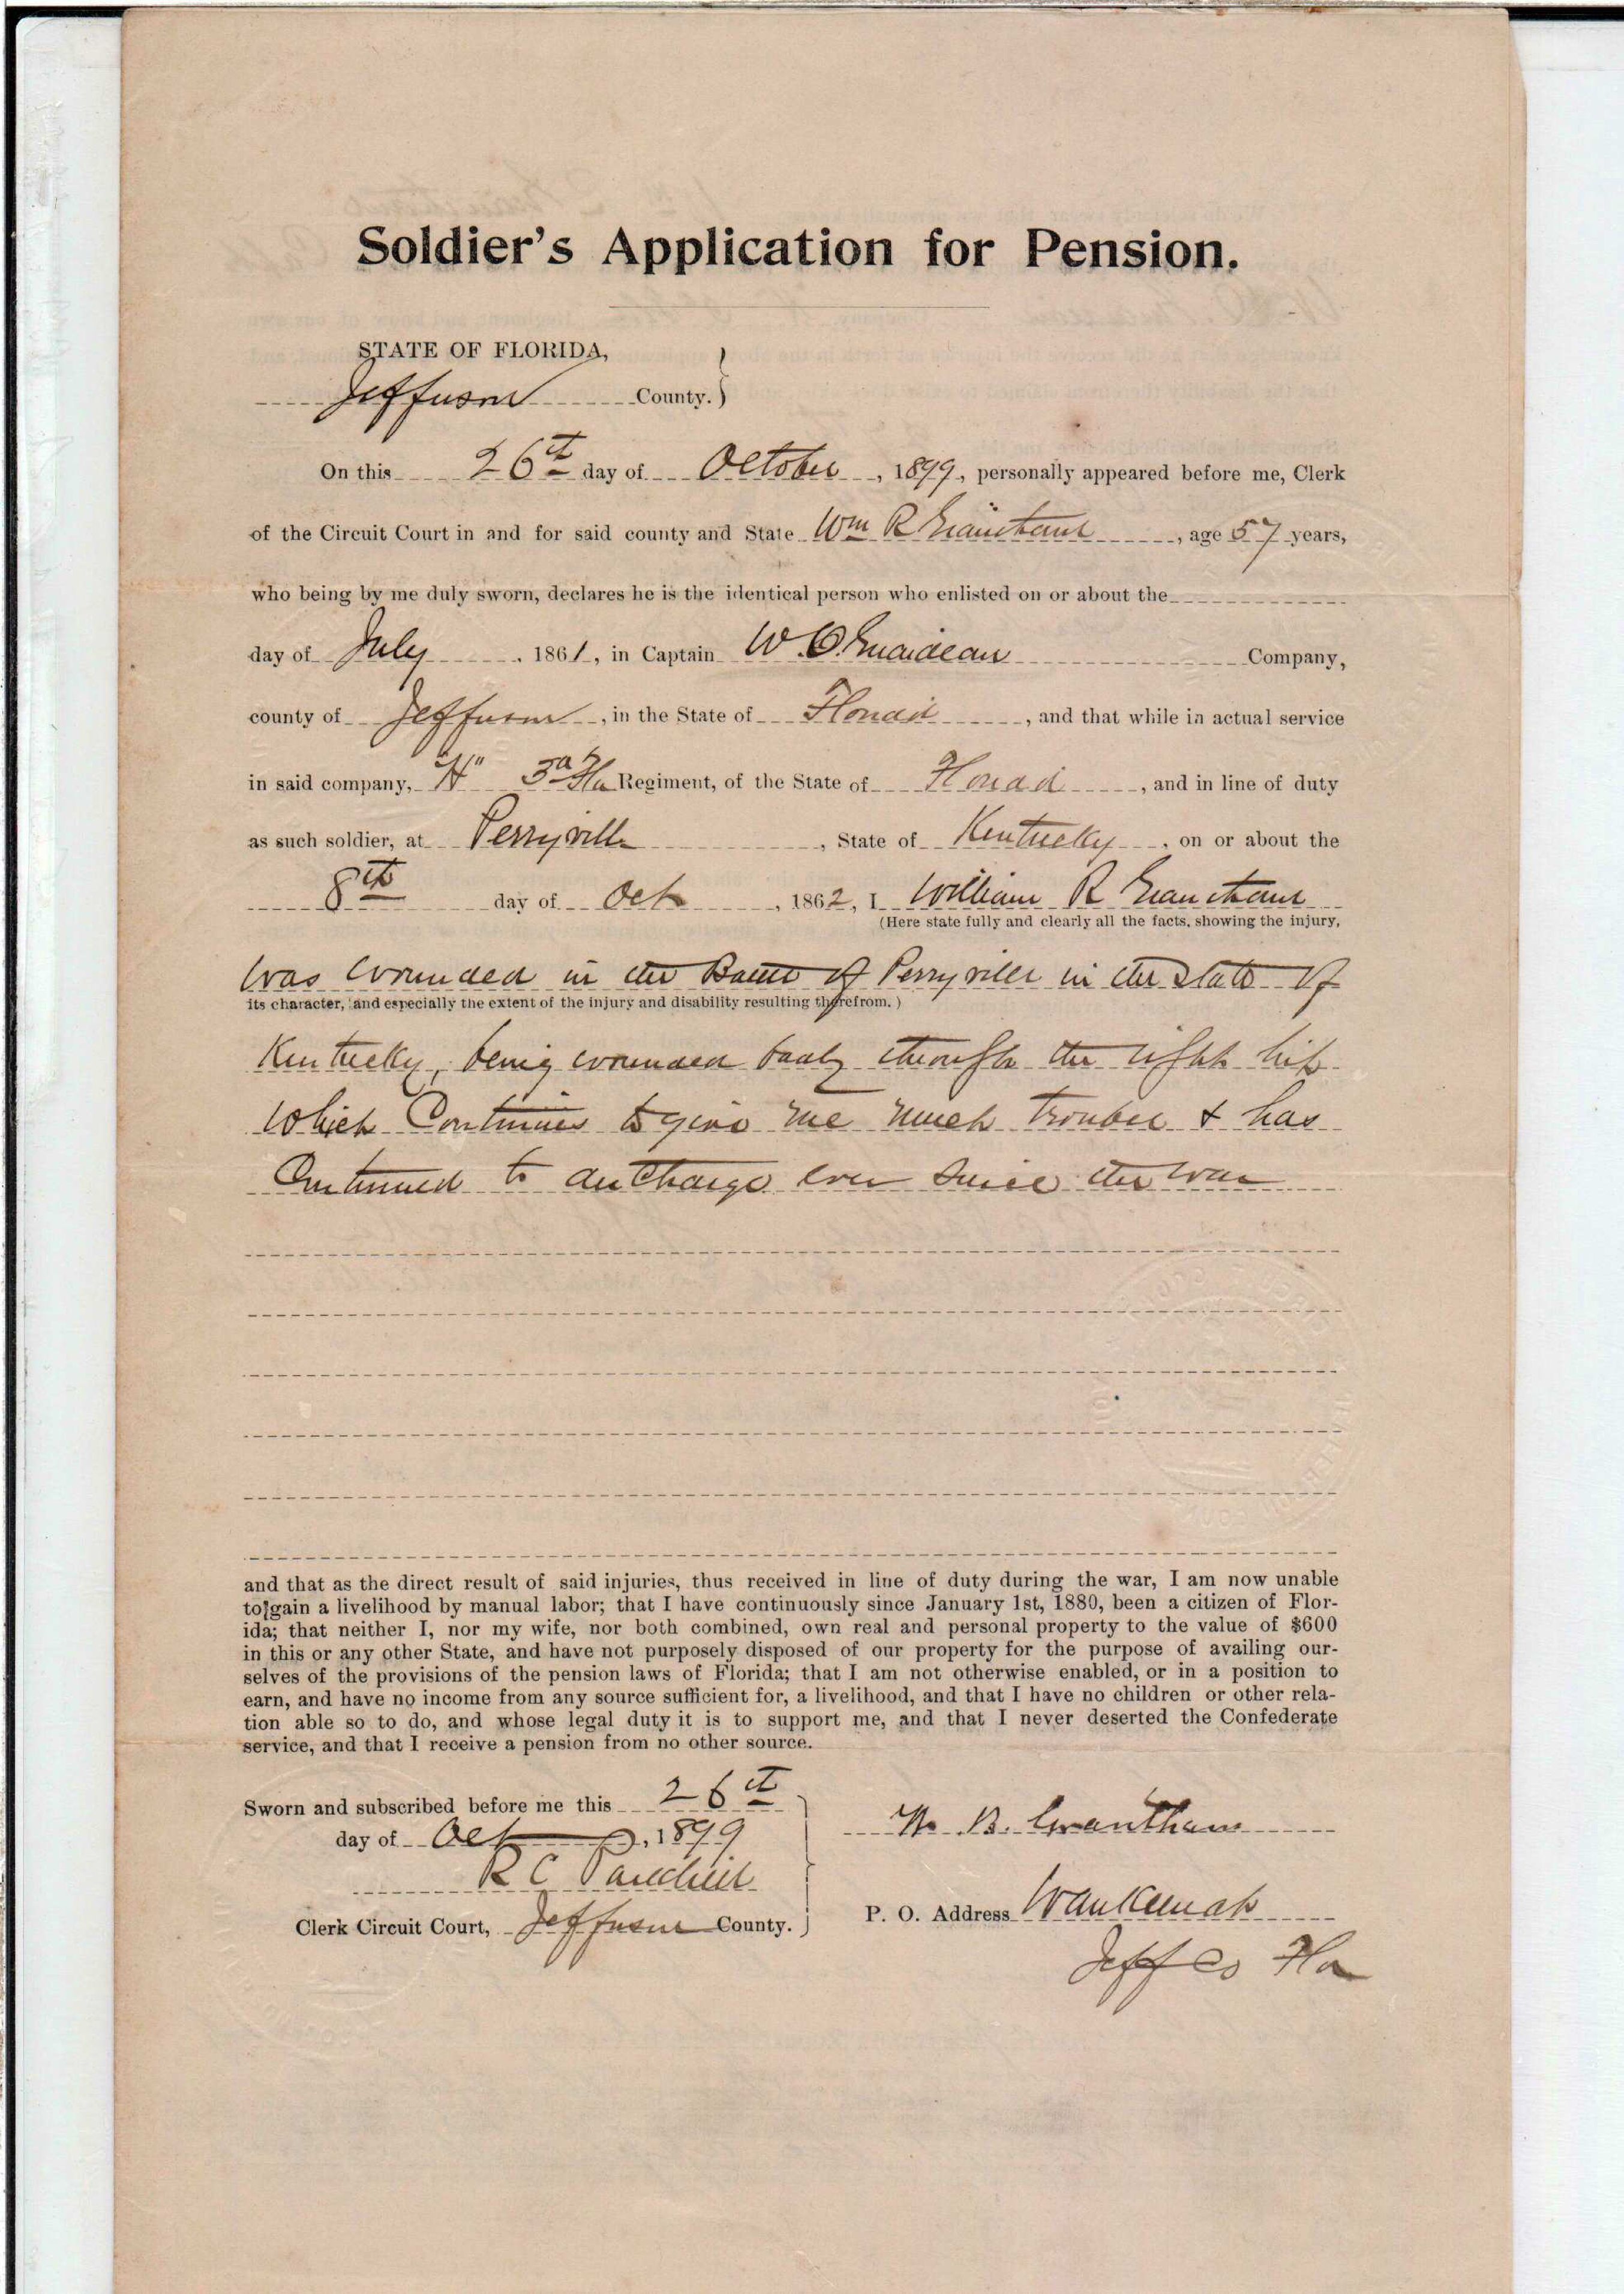 Soldier's Application for Pension.
STATE OF FLORIDA,
Jefferson County. }
On this 26th day of October, 1899, personally appeared before me, Clerk
of the Circuit Court in and for said county and State Wm R Grantham, age 57 years,
who being by me duly sworn, declares he is the identical person who enlisted on or about the
day of July, 1861, in Captain W. O. Girardeau Company,
county of Jefferson, in the State of Florida, and that while in actual service
in said company, "H" 3d Fla Regiment, of the State of Florida, and in line of duty
as such soldier, at Perryville, State of Kentucky, on or about the
8th day of Oct, 1862, I William R Grantham
(Here state fully and clearly all the facts, showing the injury,
was wounded in the Battle of Perryville in the State of
its character, and especially the extent of the injury and disability resulting therefrom.)
Kentucky, being wounded badly through the right hip
which Continues to give me much trouble & has
Continued to discharge ever since the war
and that as the direct result of said injuries, thus received in line of duty during the war, I am now unable
to gain a livelihood by manual labor; that I have continuously since January 1st, 1880, been a citizen of Flor-
ida; that neither I, nor my wife, nor both combined, own real and personal property to the value of $600
in this or any other State, and have not purposely disposed of our property for the purpose of availing our-
selves of the provisions of the pension laws of Florida; that I am not otherwise enabled, or in a position to
earn, and have no income from any source sufficient for, a livelihood, and that I have no children or other rela-
tion able so to do, and whose legal duty it is to support me, and that I never deserted the Confederate
service, and that I receive a pension from no other source.
Sworn and subscribed before me this 26th
day of Oct, 1899
R C
Clerk Circuit Court, Jefferson County. }
Grantham
P. O. Address Waukeenah
Jeff Co Fla